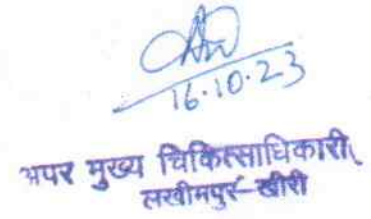 16.10.23
अपर मुख्य चिकित्साधिकारी,
लखीमपुर-खीरी